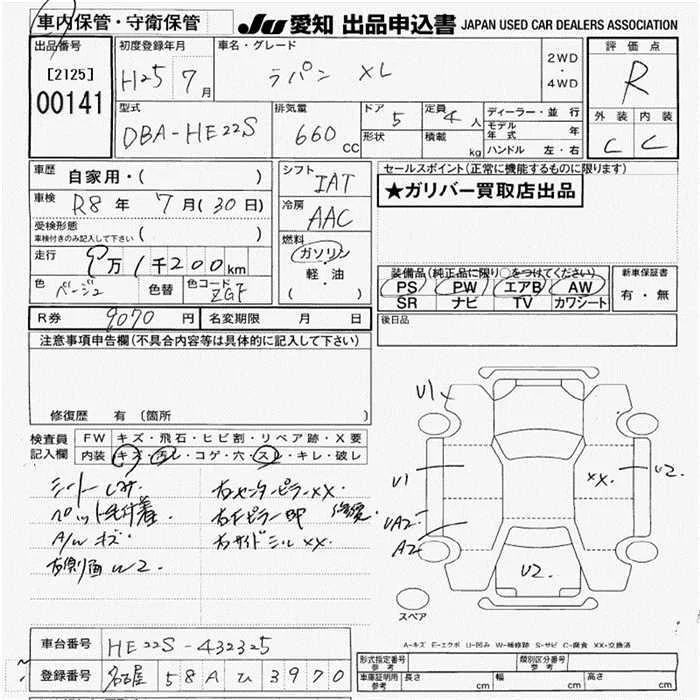 車内保管・守衛保管
JU 愛知 出品申込書 JAPAN USED CAR DEALERS ASSOCIATION
出品番号
[2125]
00141
初度登録年月
H25 7月
車名・グレード
ラパン XL
2WD
・
4WD
評価点
R
外装 内装
C C
型式
DBA-HE22S
排気量
660cc
ドア 5
形状
定員 4人
積載 kg
ディーラー・並行
モデル年式 年
ハンドル 左・右
車歴 自家用・( )
車検 R8年 7月(30日)
受検形態
車検付きのみ記入して下さい ( )
走行 9万1千200km
色 ベージュ 色替 色コード ZGF
シフト IAT
冷房 AAC
燃料
ガソリン
軽・油
( )
セールスポイント(正常に機能するものに限ります)
★ガリバー買取店出品
装備品(純正品に限り○をつけてください)
PS PW エアB AW
SR ナビ TV カワシート
新車保証書
有・無
R券 9070円 名変期限 月 日
後日品
注意事項申告欄(不具合内容等は具体的に記入して下さい)
修復歴 有 〔箇所 〕
検査員記入欄
FW キズ・飛石・ヒビ割・リペア跡・X要
内装 キズ・汚レ・コゲ・穴・スレ・キレ・破レ
シートしみ
ペット毛付着
A/W キズ
右側面 W2.
右センターピラーXX.
右Fピラー 修復
右サイドシル XX.
U1
U1
UA2
A2
XX.
U2.
U2.
スペア
A-キズ E-エクボ U-凹み W-補修跡 S-サビ C-腐食 XX-交換済
車台番号 HE22S-432325
登録番号 名古屋 58A ひ 3970
形式指定番号 参考
類別区分番号 参考
車庫証明用 参考 長さ cm 幅 cm 高さ cm